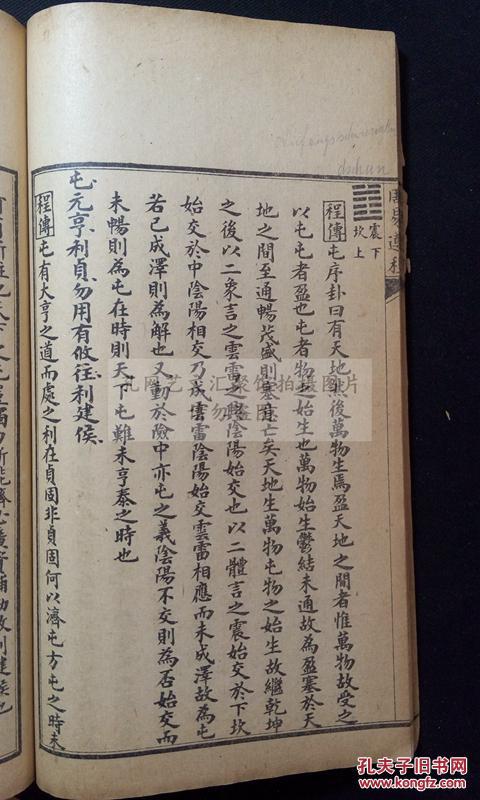 震下
坎上
程傳屯序卦曰有天地然後萬物生焉盈天地之間者惟萬物故受之
以屯屯者盈也屯者物之始生也萬物始生鬱結未通故為盈塞於天
地之間至通暢茂盛則塞意亡矣天地生萬物屯物之始生故繼乾坤
之後以二象言之雲雷之興陰陽始交也以二體言之震始交於下坎
始交於中陰陽相交乃成雲雷陰陽始交雲雷相應而未成澤故為屯
若已成澤則為解也又動於險中亦屯之義陰陽不交則為否始交而
未暢則為屯在時則天下屯難未亨泰之時也
屯元亨利貞勿用有攸往利建侯
程傳屯有大亨之道而處之利在貞固非貞固何以濟屯方屯之時未
dschun
孔夫子旧书网